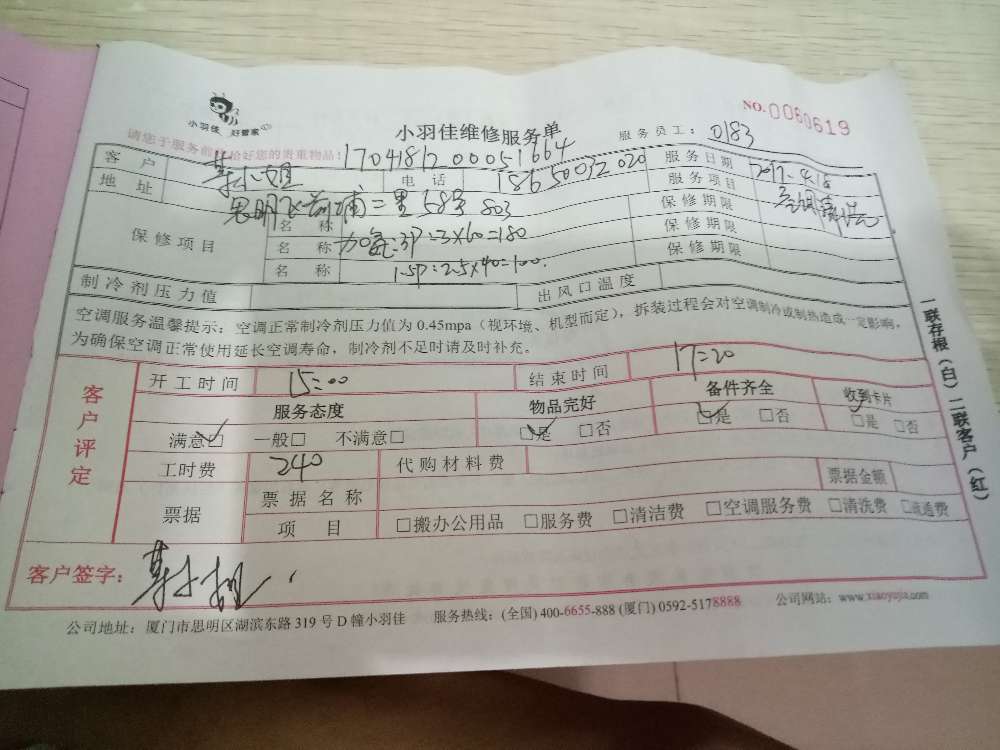 小羽佳 好管家
NO.0060619
小羽佳维修服务单
服务员工： 0183
请您于服务前 恰好您的贵重物品！
1704181200051664
客 户 小姐 电 话 18650032020 服务日期 2017.4.18
地 址 思明 前埔二里58号803 服务项目 空调
保修项目
名 称 保修期限
名 称 加氟：3P=3×60=180 保修期限
名 称 1.5P=2.5×40=100. 保修期限
制冷剂压力值 出风口温度
空调服务温馨提示：空调正常制冷剂压力值为 0.45mpa（视环境、机型而定），拆装过程会对空调制冷或制热造成一定影响，
为确保空调正常使用延长空调寿命，制冷剂不足时请及时补充。
客户评定
开工时间 15:00 结束时间 17:20
服务态度 物品完好 备件齐全 收到卡片
满意□ 一般□ 不满意□ □是 □否 □是 □否 □是 □否
工时费 240 代购材料费
票据 票据名称 票据金额
项 目 □搬办公用品 □服务费 □清洁费 □空调服务费 □清洗费 □疏通费
客户签字：
公司地址：厦门市思明区湖滨东路 319 号 D 幢小羽佳 服务热线：(全国) 400-6655-888 (厦门) 0592-5178888 公司网站：www.xiaoyujia.com
一联存根（白）二联客户（红）